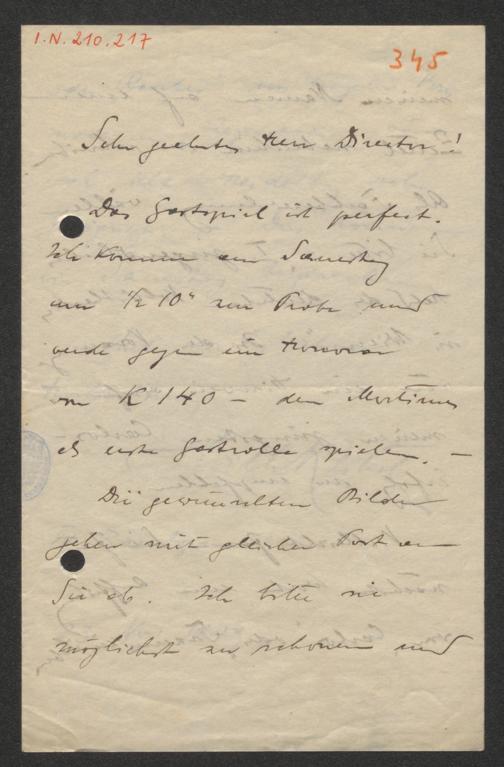 I.N. 210.217
345
Sehr geehrter Herr Director!
Das Gastspiel ist perfect.
Ich komme am Samstag
um 1/2 10h zur Probe und
werde gegen ein Honorar
von K 140 – den Mortimer
als erste Gastrolle spielen. –
Die gewünschten Bilder
gehen mit gleicher Post an
Sie ab. Ich bitte sie
möglichst zu schonen und